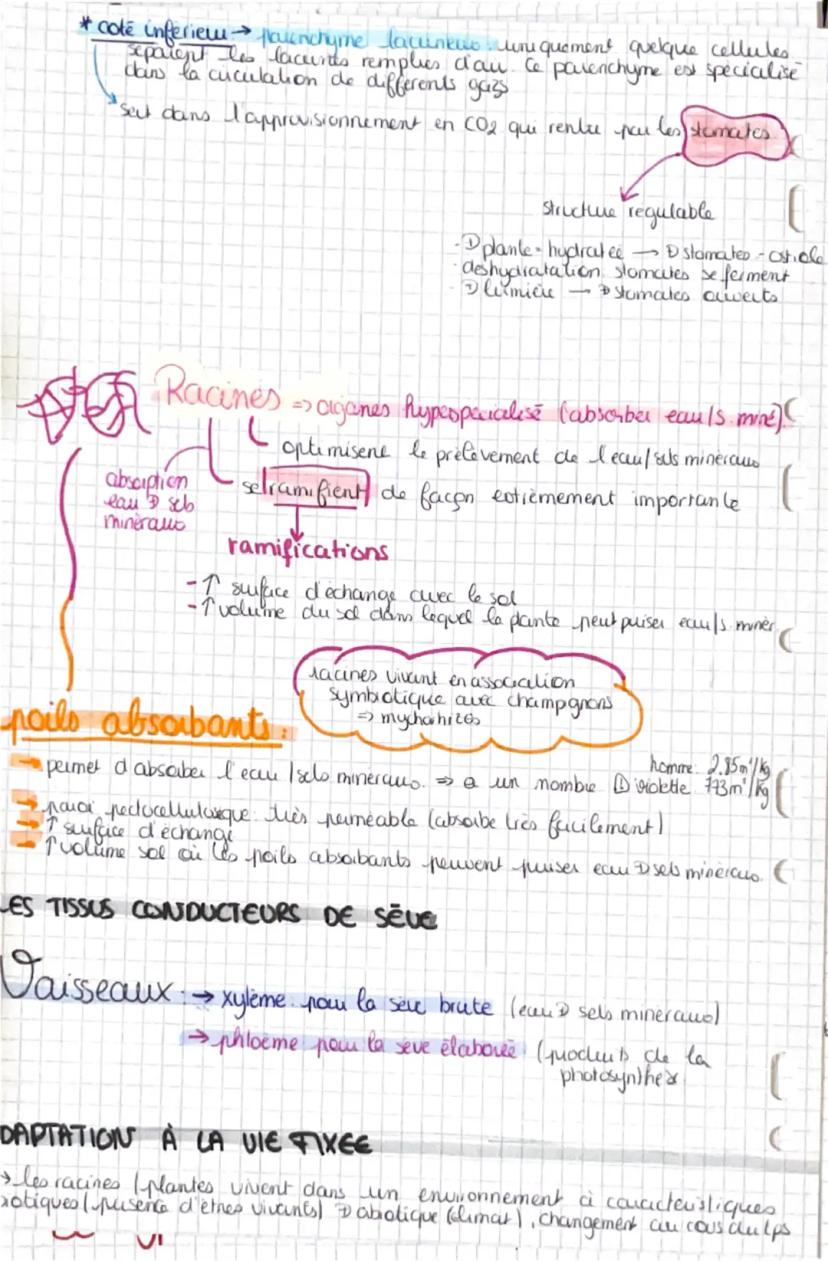 * coté inférieur → parenchyme lacuneux : uniquement quelque cellules
séparent les lacunes remplies d'air. Ce parenchyme est spécialisé
dans la circulation de différents gazs
sert dans l'approvisionnement en CO2 qui rentre par les stomates
structure régulable
- ⊕ plante - hydratée → ⊕ stomates - ostiole
déshydratation stomates se ferment
⊕ lumière → ⊕ stomates ouverts
Racines => organes hyperspécialisé (absorber eau/s. miné).
optimisent le prélèvement de l'eau/sels minéraux
absorption
eau ⊕ sels
minéraux
se ramifient de façon extrêmement importante
ramifications
- ↑ surface d'échange avec le sol
- ↑ volume du sol dans lequel la plante peut puiser eau/s. minér.
racines vivant en association
symbiotique avec champignons
=> mychorhizes
poils absorbants :
homme : 2.85m²/kg
→ permet d'absorber l'eau/sels minéraux. => a un nombre ⊕ violette 773m²/kg
→ paroi pectocellulosique : très perméable (absorbe très facilement)
→ ↑ surface d'échange
→ ↑ volume sol où les poils absorbants peuvent puiser eau ⊕ sels minéraux.
LES TISSUS CONDUCTEURS DE SÈVE
Vaisseaux : → xylème pour la sève brute (eau ⊕ sels minéraux)
→ phloème pour la sève élaborée (produits de la
photosynthèse)
DAPTATION À LA VIE FIXEE
→ les racines / plantes vivent dans un environnement à caractéristiques
iotiques (présence d'êtres vivants) ⊕ abiotique (climat), changement au cous du tps